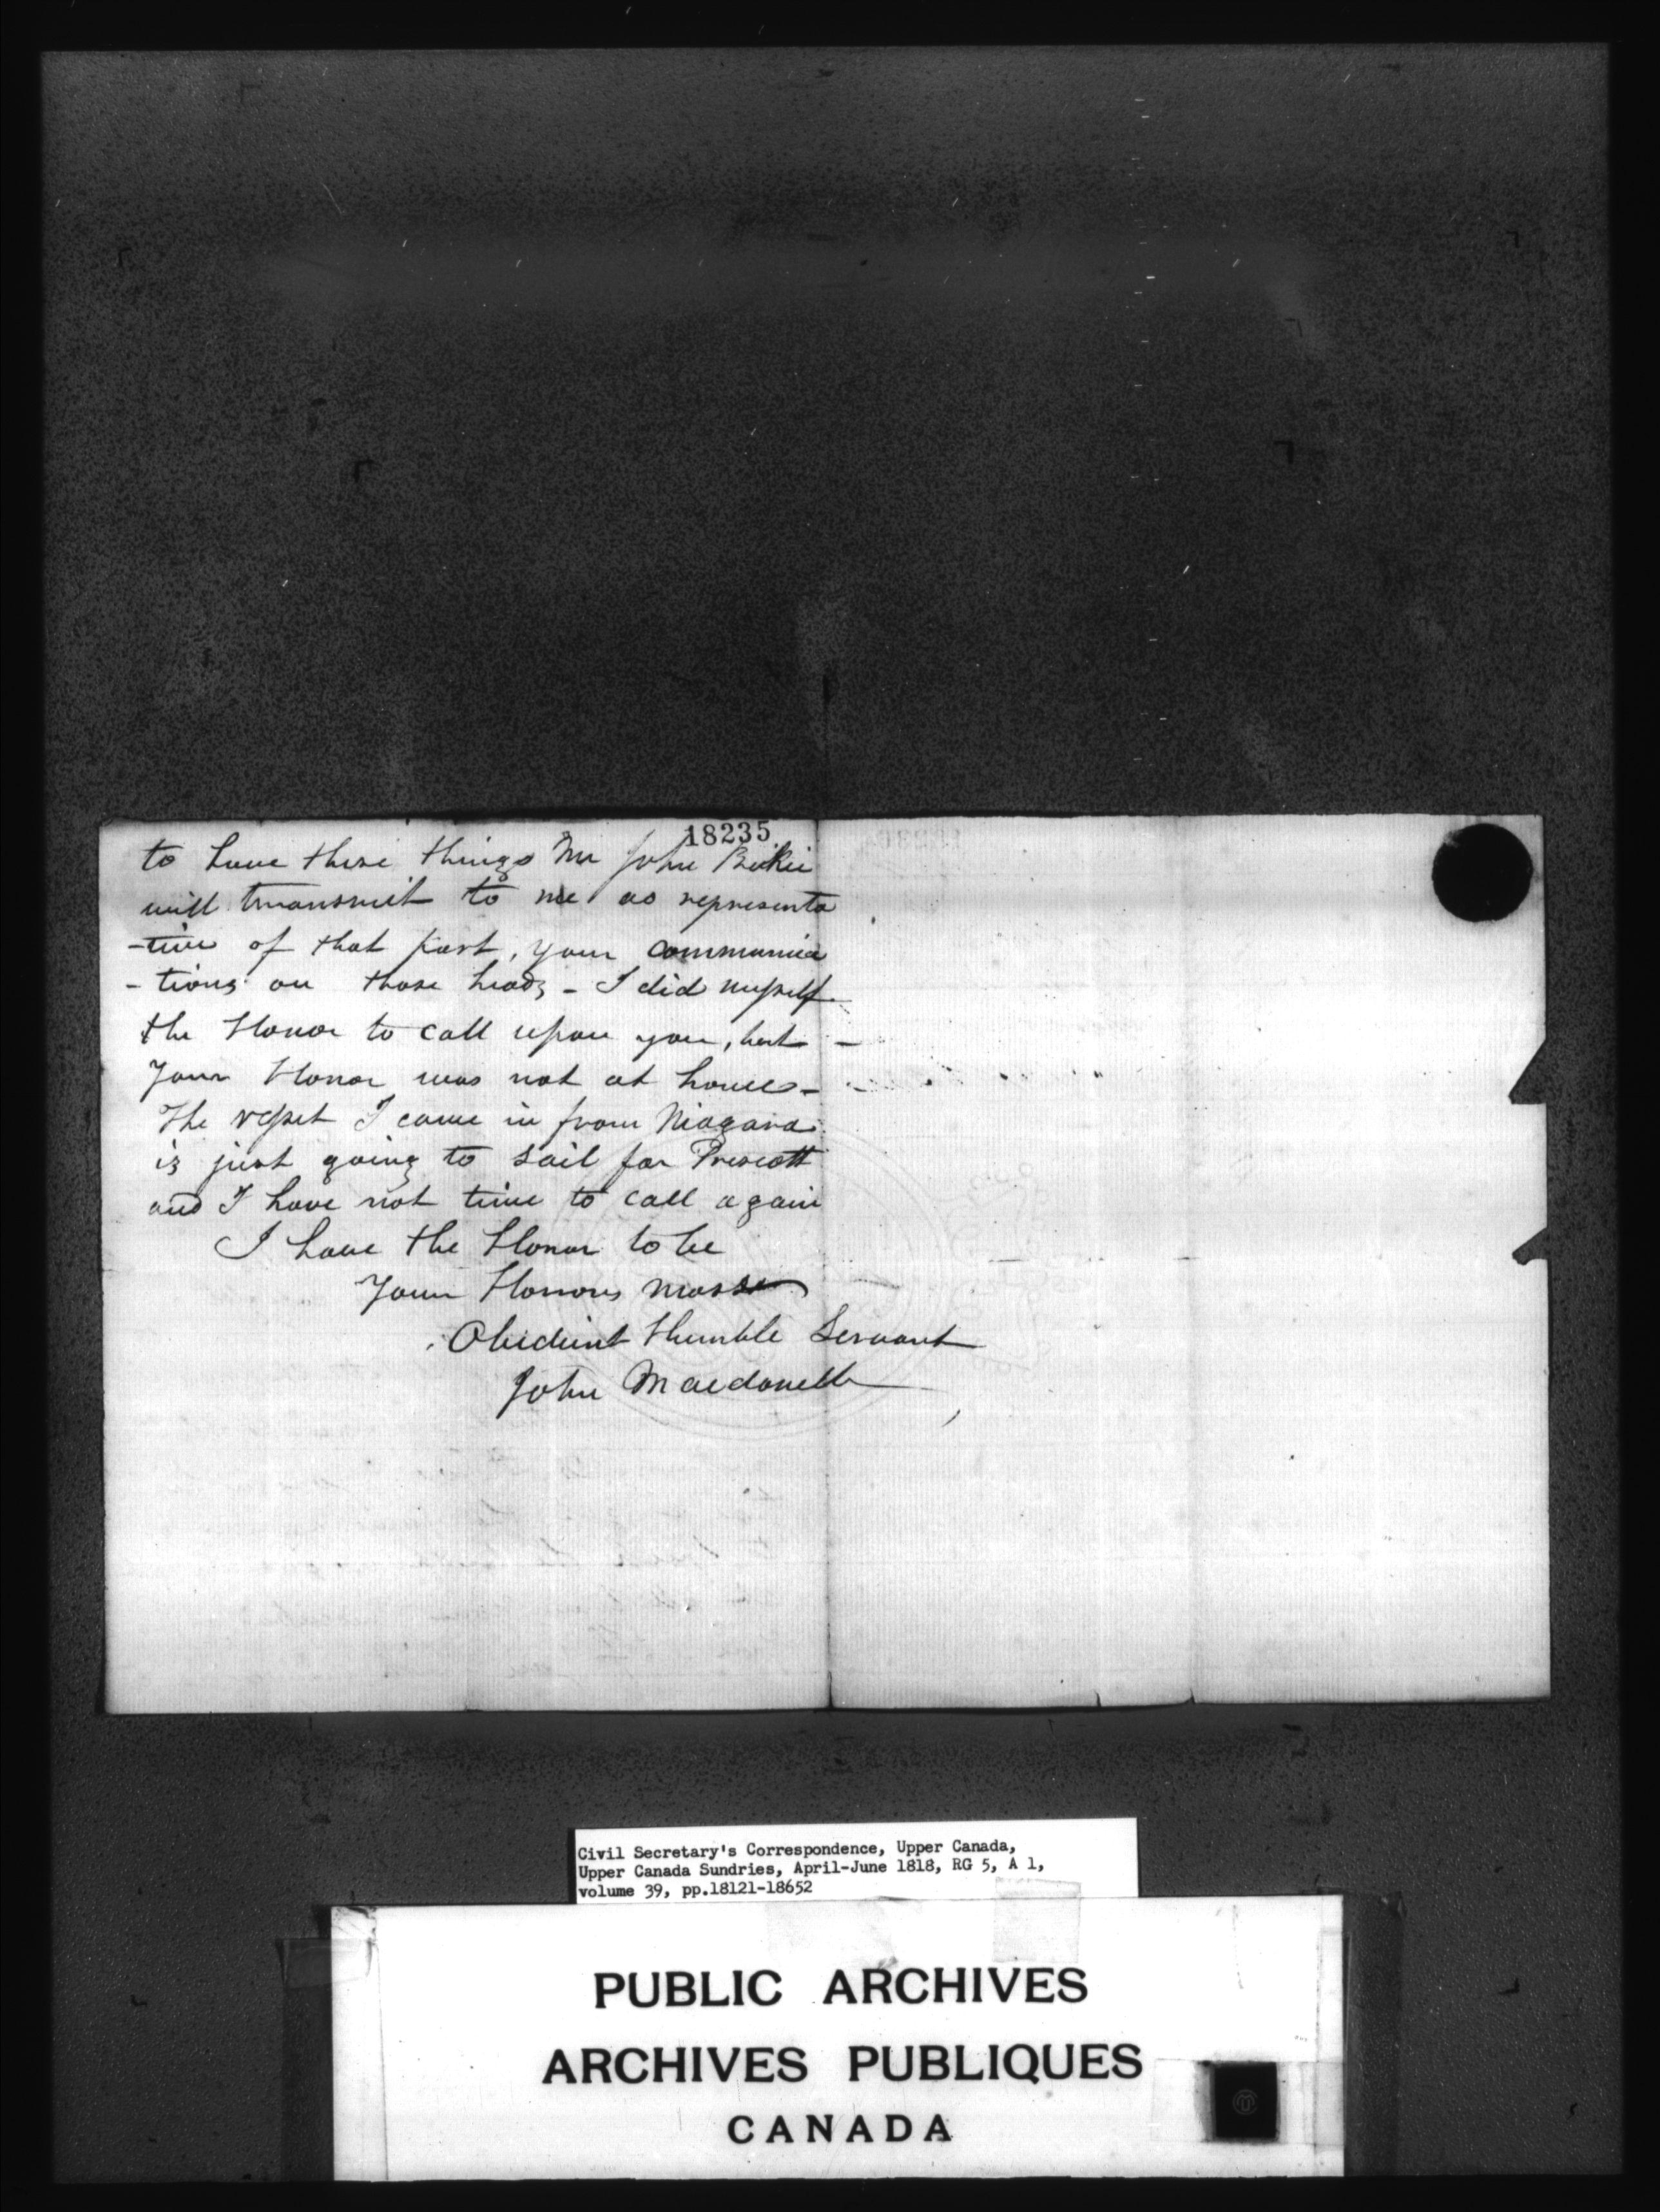 18235
to have these things Mr John Beikie
will transmit to me as representa
-tive of that part, your communica
- tions on those heads - I did myself
the Honor to call upon you, but -
Your Honor was not at home -
The vessel I came in from Niagara
is just going to sail for Prescott
and I have not time to call again
I have the Honor to be
Your Honors most
Obedient Humble Servant
John Macdonell
Civil Secretary's Correspondence, Upper Canada,
Upper Canada Sundries, April-June 1818, RG 5, A 1,
volume 39, pp.18121-18652
PUBLIC ARCHIVES
ARCHIVES PUBLIQUES
CANADA